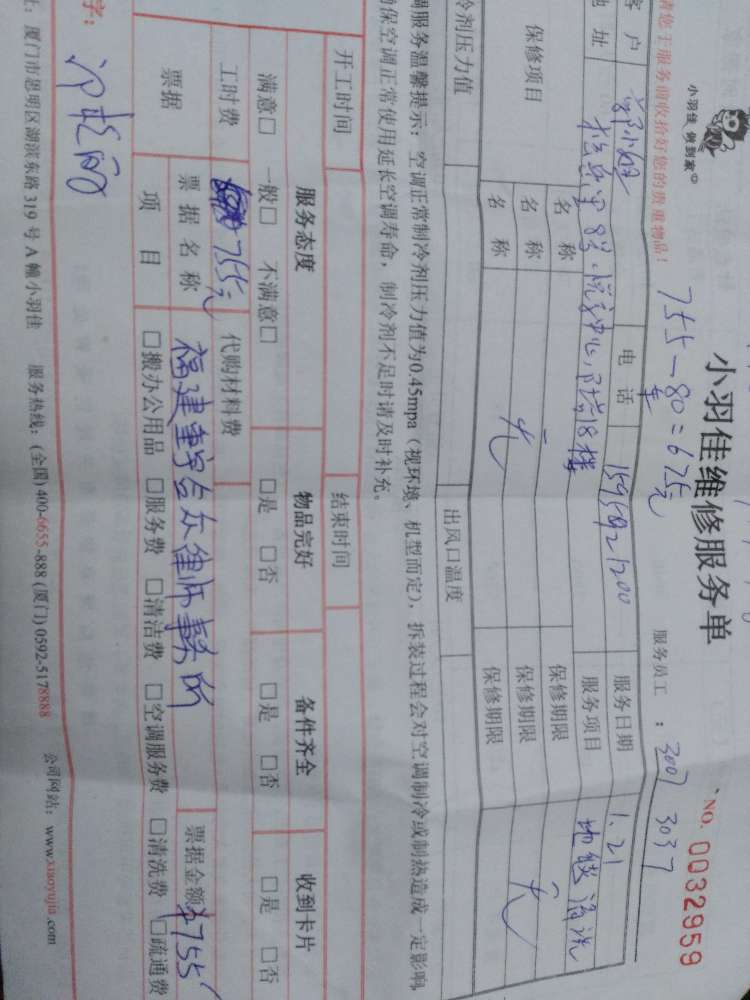 小羽佳 做到家
小羽佳维修服务单
NO. 0032959
755-80=675元
服务员工：3007 3037
请您在服务前收拾好您的贵重物品！
客户 郭小姐 电话 服务日期 1.21
地址 服务项目 地毯清洗
保修项目 名称 保修期限
名称 无 保修期限 无
名称 保修期限
冷剂压力值 出风口温度
调服务温馨提示：空调正常制冷剂压力值为0.45mpa（视环境、机型而定），拆装过程会对空调制冷或制热造成一定影响，
确保空调正常使用延长空调寿命，制冷剂不足时请及时补充。
开工时间 结束时间
服务态度 物品完好 备件齐全 收到卡片
满意□ 一般□ 不满意□ □是 □否 □是 □否 □是 □否
工时费 755元 代购材料费
票据 票据名称 福建重宇合众律师事务所 票据金额 ¥755
项目 □搬办公用品 □服务费 □清洁费 □空调服务费 □清洗费 □疏通费
字：
址：厦门市思明区湖滨东路319号A幢小羽佳 服务热线：(全国)400-6655-888 (厦门)0592-5178888 公司网站：www.xiaoyujia.com